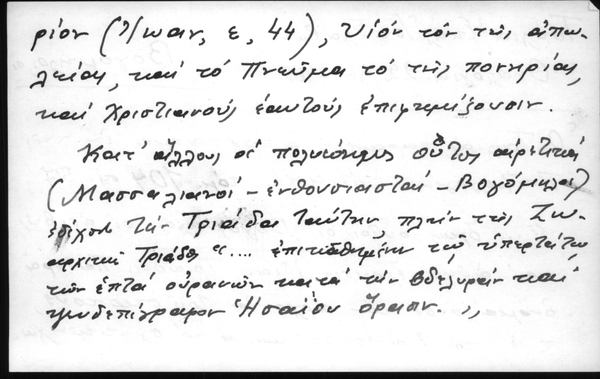 ρίον (Ἰωαν, ε, 44), Υἱόν τόν τῆς ἀπω-
λείας, καί τό Πνεῦμα τό τῆς πονηρίας,
καί Χριστιανούς ἑαυτούς ἐπιφημίζουσιν.
Κατ' ἄλλους οἱ πολυώνυμοι οὗτοι αἱρετικοί
(Μασσαλιανοί - ἐνθουσιασταί - Βογόμηλοι)
τήν Τριάδα ταύτην πλήν τῆς Ζω-
αρχικῆς Τριάδος "... ἐπικαθημένην τῷ ὑπερτάτῳ
τῶν ἑπτά οὐρανῶν κατά τήν βδελυράν καί
ψευδεπίγραφον Ἡσαΐου ὅρασιν.,,